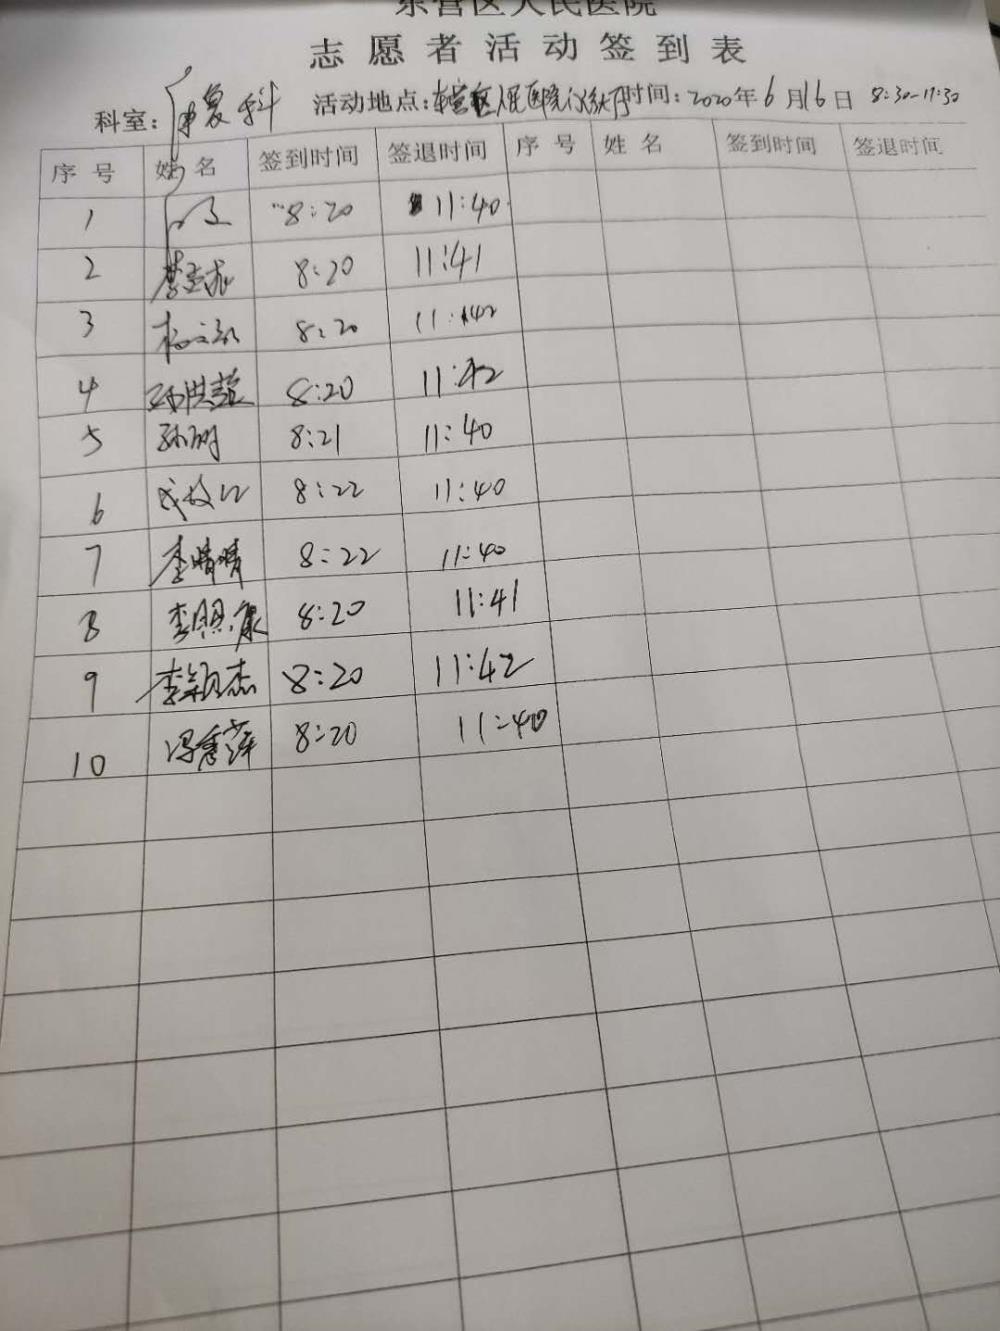 东营区人民医院
志愿者活动签到表
科室：康复科 活动地点：东营区人民医院门诊大厅 时间：2020年6月16日 8:30-11:30
序号 姓名 签到时间 签退时间 序号 姓名 签到时间 签退时间
1 8:20 11:40
2 8:20 11:41
3 8:20 11:42
4 8:20 11:42
5 8:21 11:40
6 8:22 11:40
7 李晴晴 8:22 11:40
8 李照康 8:20 11:41
9 李颖杰 8:20 11:42
10 冯秀萍 8:20 11:40